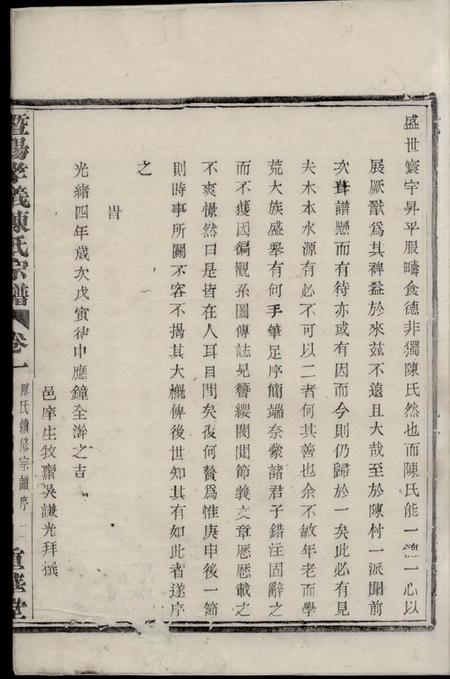 盛世寰宇昇平服疇食德非獨陳氏然也而陳氏能一德一心以
展厥猷爲其裨益於來茲不遠且大哉至於陳村一派聞前
次旹譜懸而有待亦或有因而今則仍歸於一矣此必有見
夫木本水源有必不可以二者何其善也余不敏年老而學
荒大族盛舉有何手筆足序簡端奈蒙諸君子錯注固辭之
而不獲因徧觀系圖傳誌見簪纓閥閱節義文章歷歷載之
不爽憬然曰是皆在人耳目間矣復何贅爲惟庚申後一節
則時事所關不容不揭其大槪俾後世知其有如此者遂序
之
旹
光緒四年歲次戊寅律中應鐘全澣之吉
邑庠生牧齋吳謙光拜撰
暨陽孝義陳氏宗譜 卷一 陳氏續修宗譜序 二